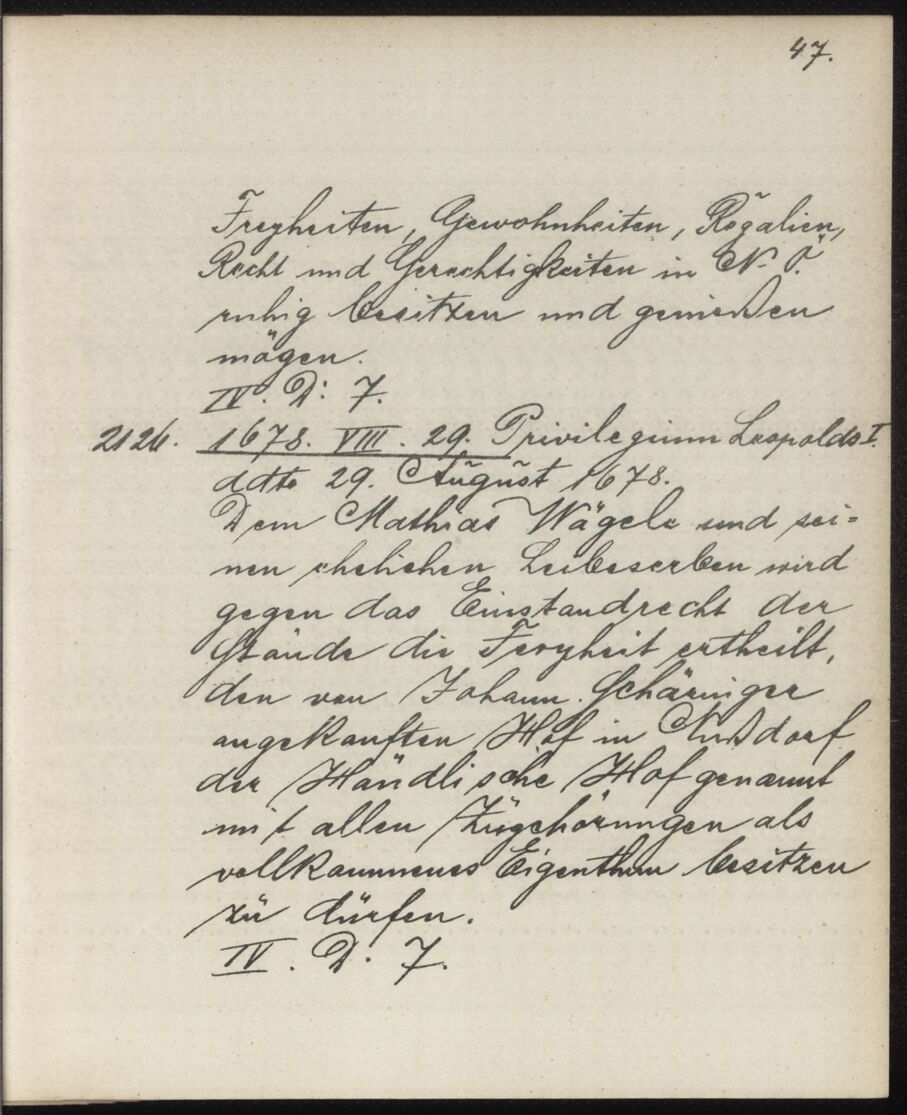 47.
Freyheiten, Gewohnheiten, Regalien,
Recht und Gerechtigkeiten in N. Ö.
ruhig besitzen und genießen
mögen.
IV. D: 7.
2126. 1678. VIII. 29. Privilegium Leopolds I.
ddto 29. August 1678.
Dem Mathias Wägele und sei=
nen ehelichen Leibeserben wird
gegen das Einstandrecht der
Stände die Freyheit ertheilt,
den von Johann Schäringer
angekauften Hof in Nußdorf
der Händlische Hof genannt
mit allen Zugehörungen als
vollkommenes Eigenthum besitzen
zu dürfen.
IV. D. 7.